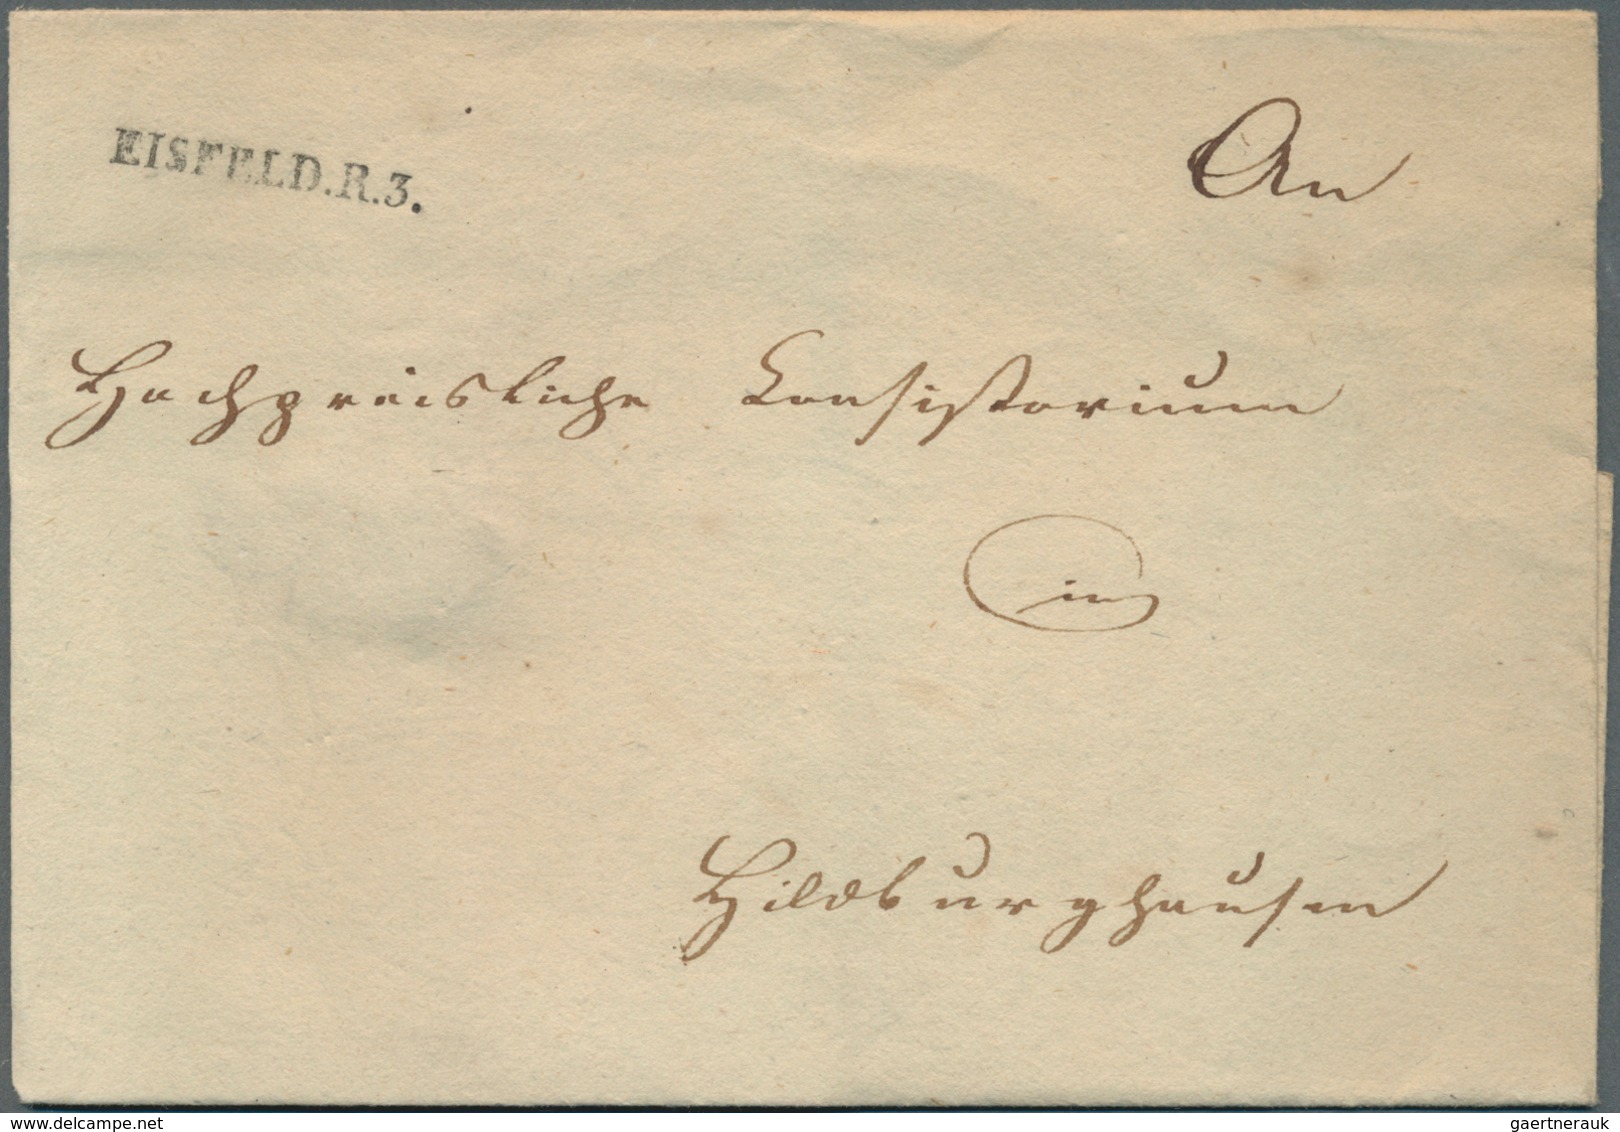 EISFELD.R.3.
An
Hochpreisliche Consistorium
in
Hildburghausen
© www.delcampe.net
gaertnerauk